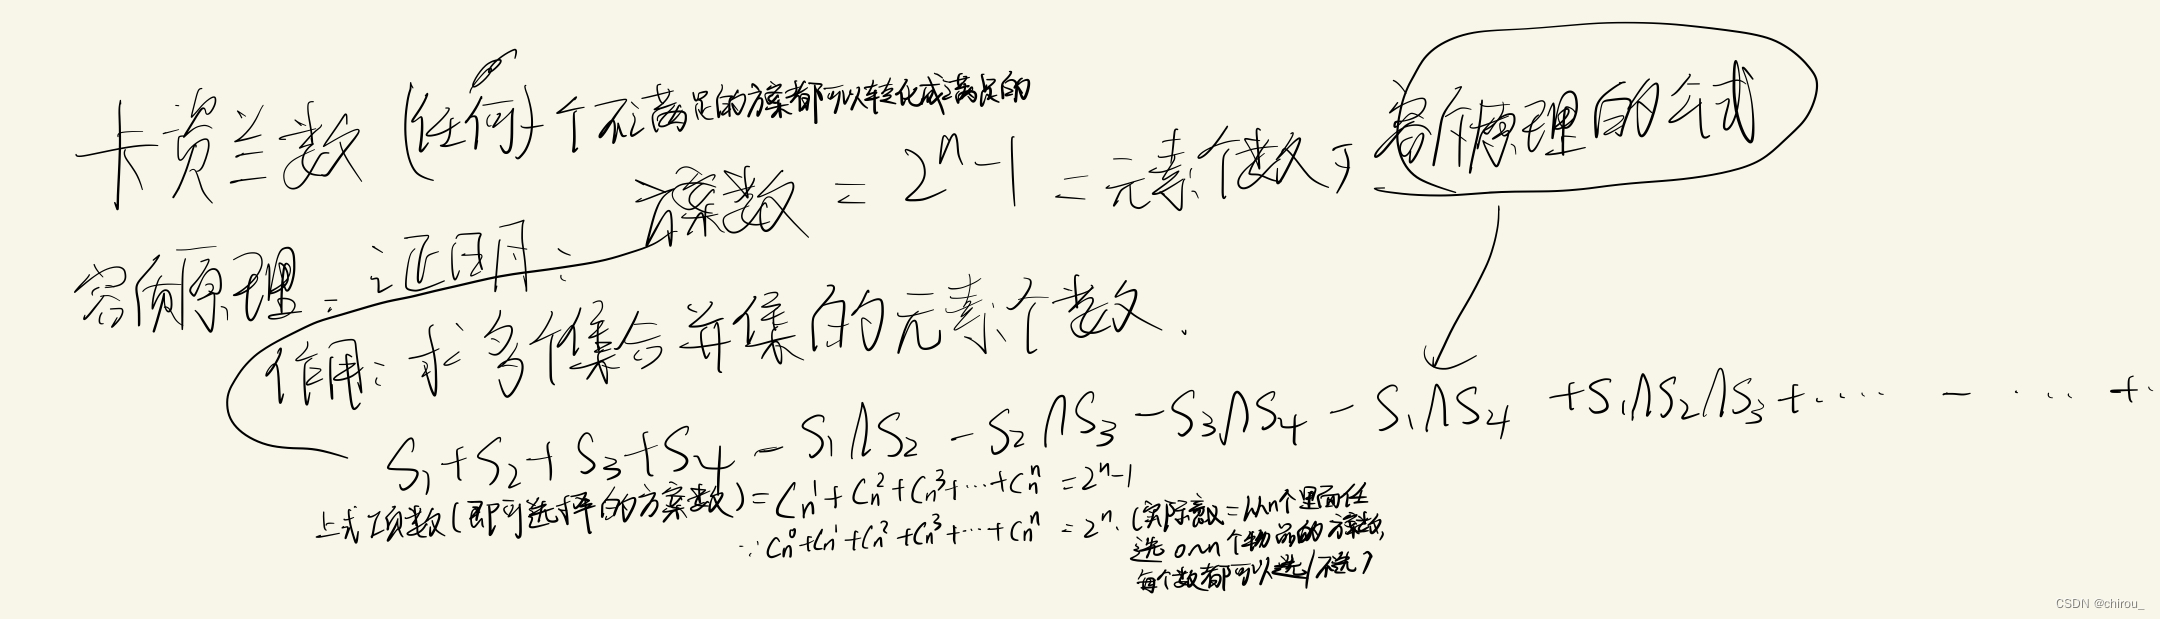 卡特兰数 (任何一个不满足的方案都可以转化成满足的)
容斥原理：证明： 方案数 = 2^n - 1 = 元素个数 容斥原理的公式
作用：求多个集合并集的元素个数.
S₁+S₂+S₃+S₄ - S₁∩S₂ - S₂∩S₃ - S₃∩S₄ - S₁∩S₄ + S₁∩S₂∩S₃ + ···· - ···· + ··
上式项数(即可选择的方案数) = Cₙ¹ + Cₙ² + Cₙ³ + ··· + Cₙⁿ = 2ⁿ-1
∵ Cₙ⁰ + Cₙ¹ + Cₙ² + Cₙ³ + ··· + Cₙⁿ = 2ⁿ. (实际意义=从n个里面任
选 0~n 个物品的方案数,
每个数都可以选/不选)
CSDN @chirou_